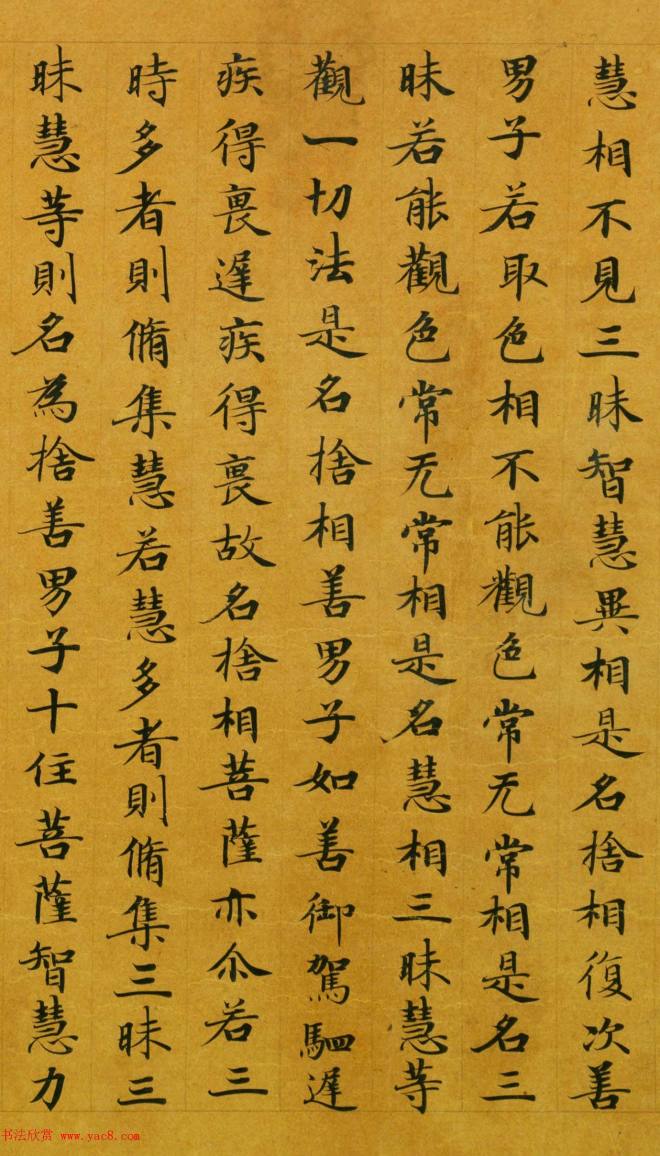 慧相不見三昧智慧異相是名捨相復次善
男子若取色相不能觀色常无常相是名三
昧若能觀色常无常相是名慧相三昧慧等
觀一切法是名捨相善男子如善御駕駟遲
疾得所遲疾得所故名捨相菩薩亦尒若三
時多者則脩集慧若慧多者則脩集三昧三
昧慧等則名為捨善男子十住菩薩智慧力
书法欣赏 www.yac8.com